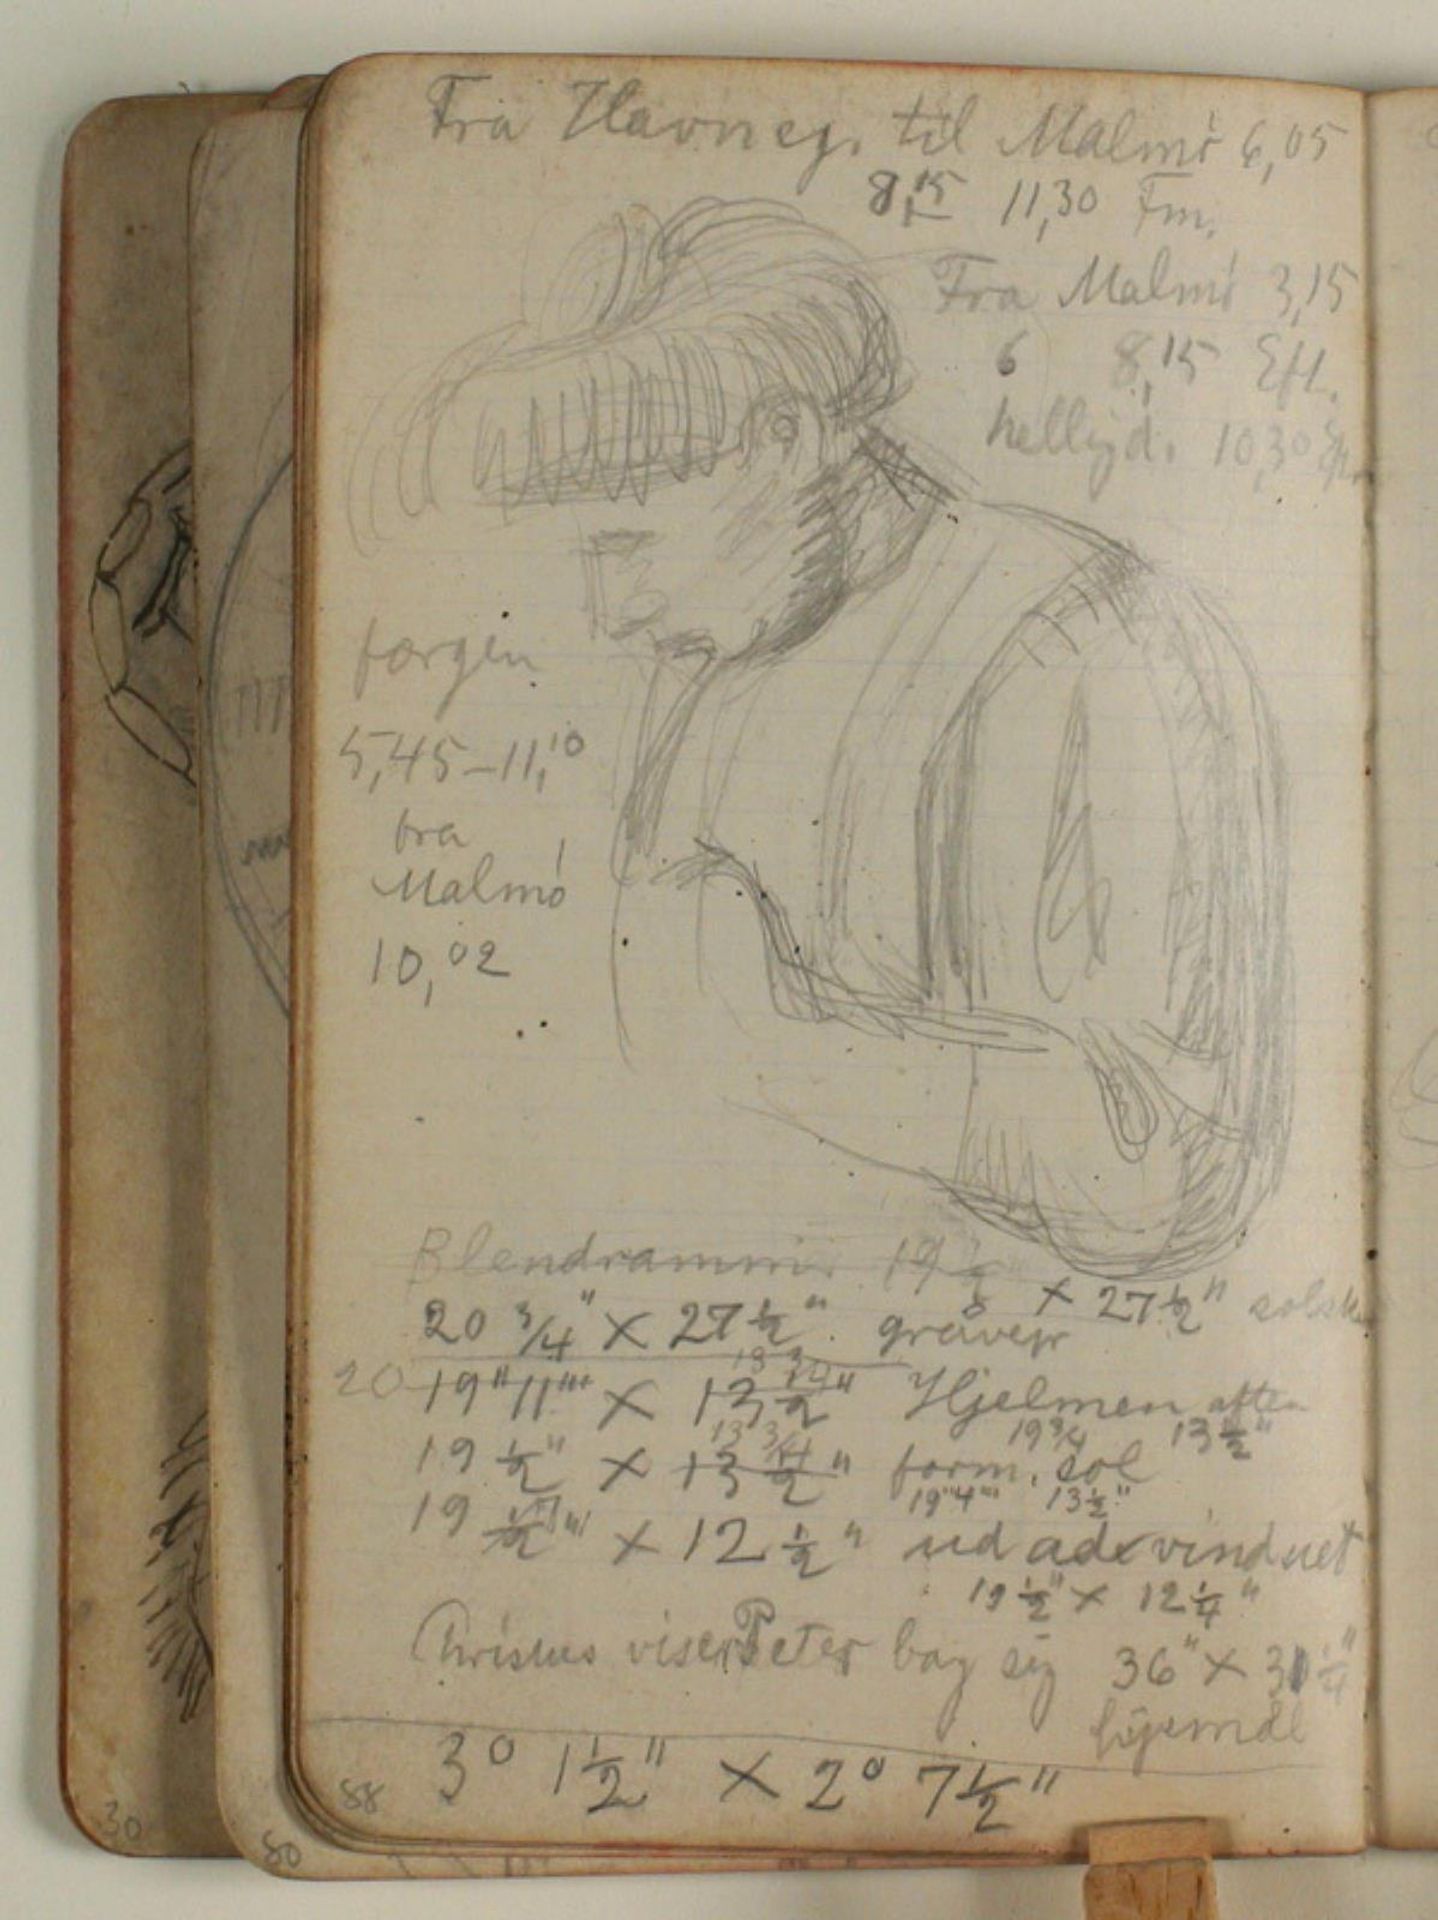 Fra Havneg. til Malmö 6,05
8,15 11,30 Fm.
Fra Malmö 3,15
6 8,15 Eft.
helligd. 10,30 Eft.
færgen
5,45–11,10
fra
Malmö
10,02
Blendramme 19 × 27 1/2" solsk
20 3/4" × 27 1/2" gråvejr
20 19" 11"' × 13 1/2" Hjelmen aften
19 3/4 13 1/2"
19 1/2" × 13 1/2" form. sol
13 3/4
19" 4"' 13 1/2"
19 × 12 1/2" ud ad vinduet
19 1/2" × 12 1/4"
Christus viser Peter bag sig 36" × 31 1/4"
lysmål
3° 1 1/2" × 2° 7 1/2"
88
80
30